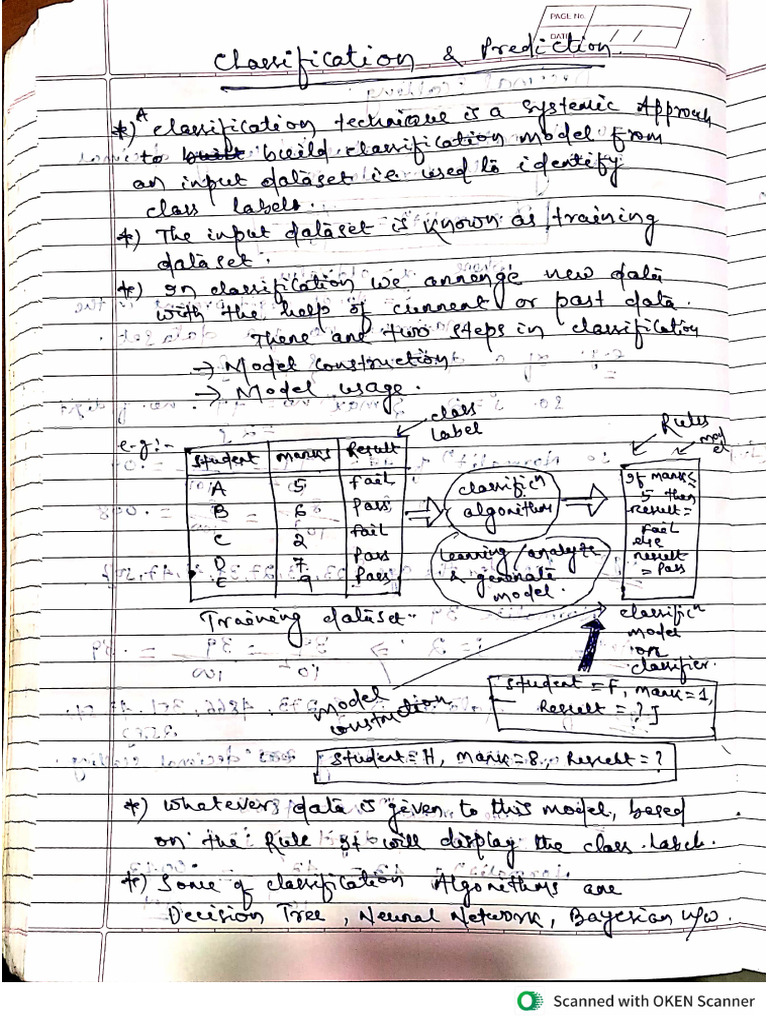 PAGE No.
DATE
Classification & Prediction.
*) A classification technique is a systemic Approach
to built build classification model from
an input dataset i.e used to identify
class labels.
*) The input dataset is known as training
dataset.
*) In classification we arrange new data
with the help of current or past data.
There are two steps in classification
→ Model construction
→ Model usage.
e.g:-
class
label
Rules
model
Student marks Result
A 5 fail
B 6 Pass
C 2 fail
D 7 Pass
E 9 Pass
Training dataset.
classificn
algorithms
Learning/analyze
& generate
model.
If marks ≤
5 then
result =
fail
else
result
= pass
classificn
model
or
classifier.
model
construction
Student = F, mark = 1,
Result = ?
Student = H, mark = 8, Result = ?
*) Whatever data is given to this model, based
on the Rule it will display the class label.
*) Some of classification Algorithms are
Decision Tree, Neural Network, Bayesian n/w.
Scanned with OKEN Scanner